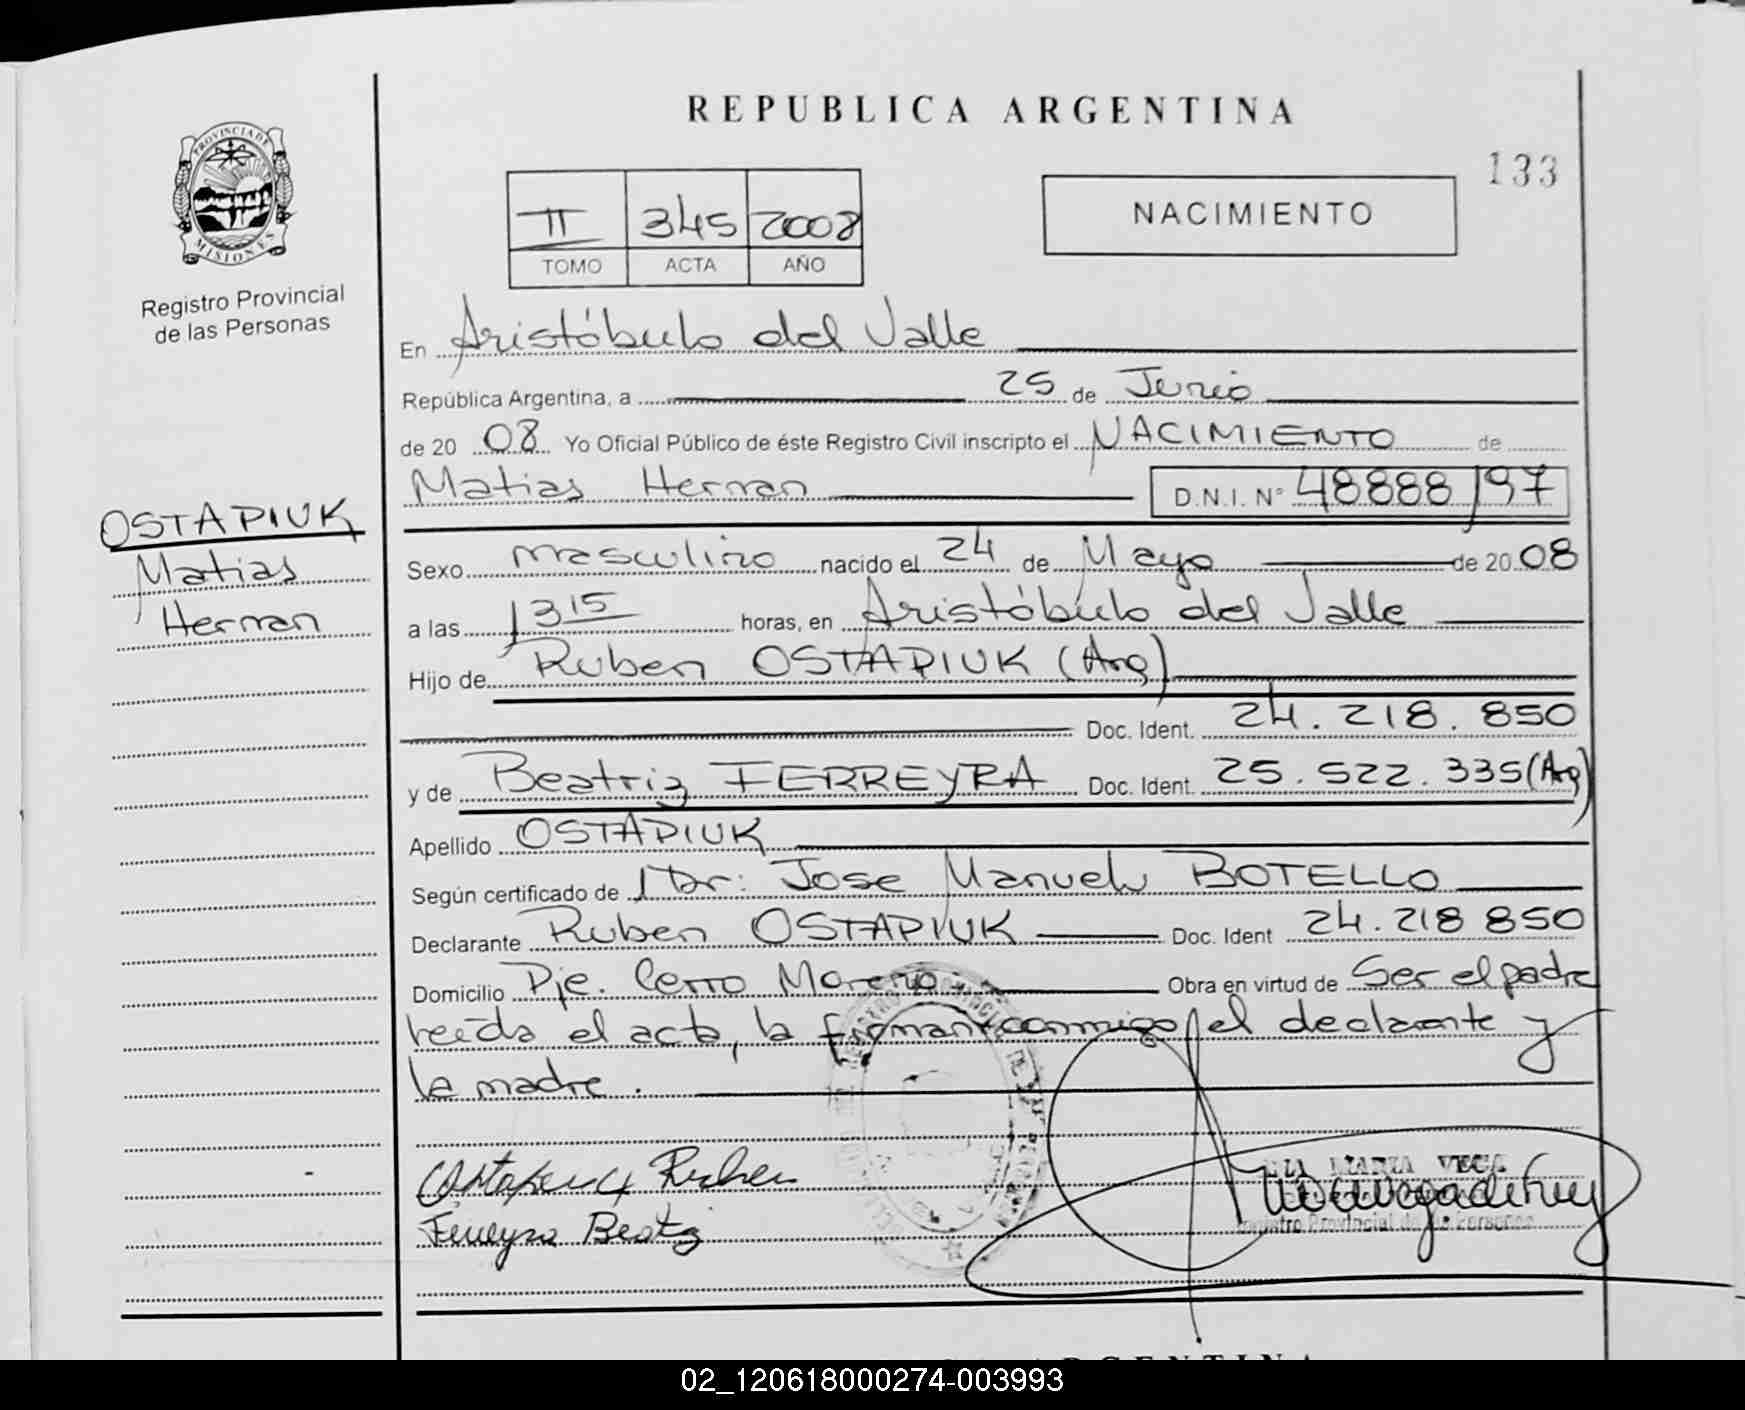 REPUBLICA ARGENTINA
133
PROVINCIA DE
MISIONES
Registro Provincial
de las Personas
II 345 2008
TOMO ACTA AÑO
NACIMIENTO
En Aristóbulo del Valle
República Argentina, a 25 de Junio
de 20 08 Yo Oficial Público de éste Registro Civil inscripto el NACIMIENTO de
Matias Hernan D.N.I. N° 48888197
OSTAPIUK
Matias
Hernan
Sexo masculino nacido el 24 de Mayo de 20 08
a las 1315 horas, en Aristóbulo del Valle
Hijo de Ruben OSTAPIUK (Arg)
Doc. Ident. 24.218.850
y de Beatriz FERREYRA Doc. Ident. 25.522.335 (Arg)
Apellido OSTAPIUK
Según certificado de Dr: Jose Manuel BOTELLO
Declarante Ruben OSTAPIUK Doc. Ident 24.218 850
Domicilio Pje. Cerro Moreno Obra en virtud de Ser el padre
leída el acta, la firman conmigo el declarante y
la madre.
Ruben
Ferreyra Beatriz
MARIA VEGA
Registro Provincial de las Personas
ARGENTINA
02_120618000274-003993